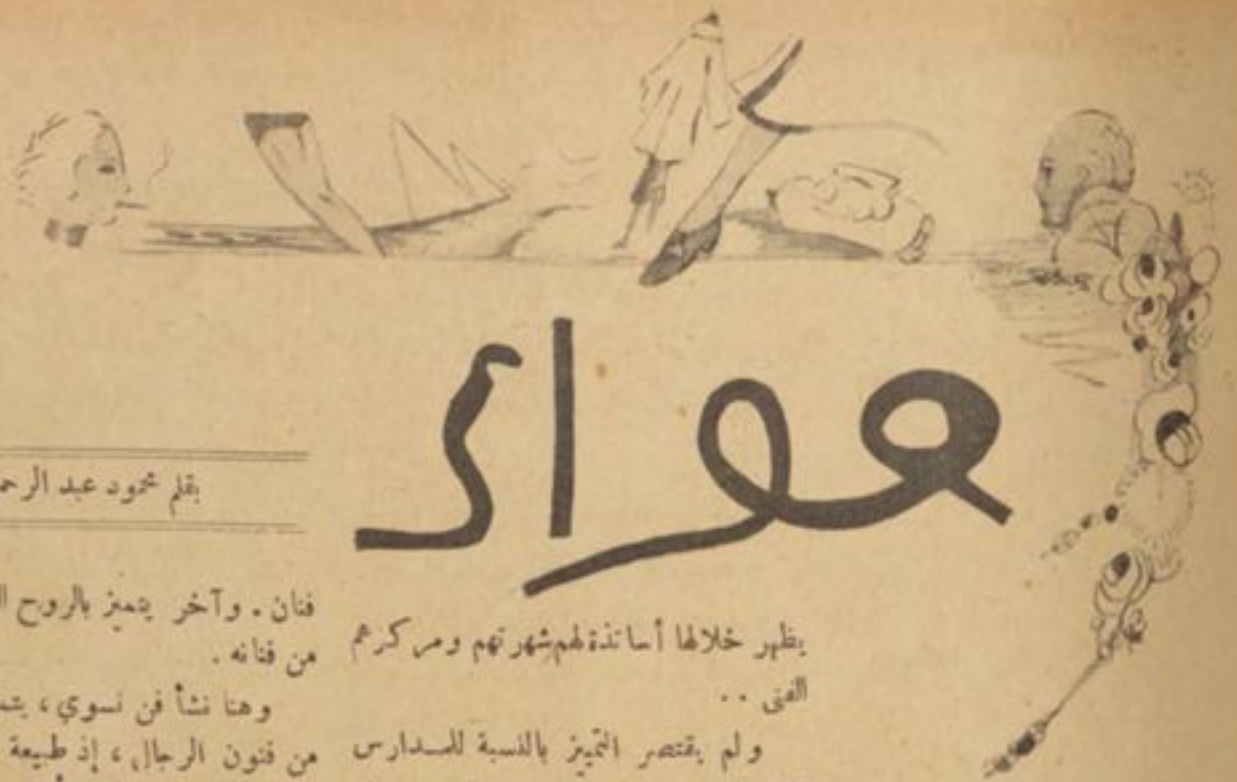 بقلم محمود عبد
يظهر خلالها أساتذة لهم شهرتهم ومركزهم
الفنى . .
ولم يقتصر التميز بالنسبة للمدارس
فنان . وآخر يتميز بالروح
من فنانه .
وهنا نشأ فن نسوي ،
من فنون الرجال ، إذ طبيعة